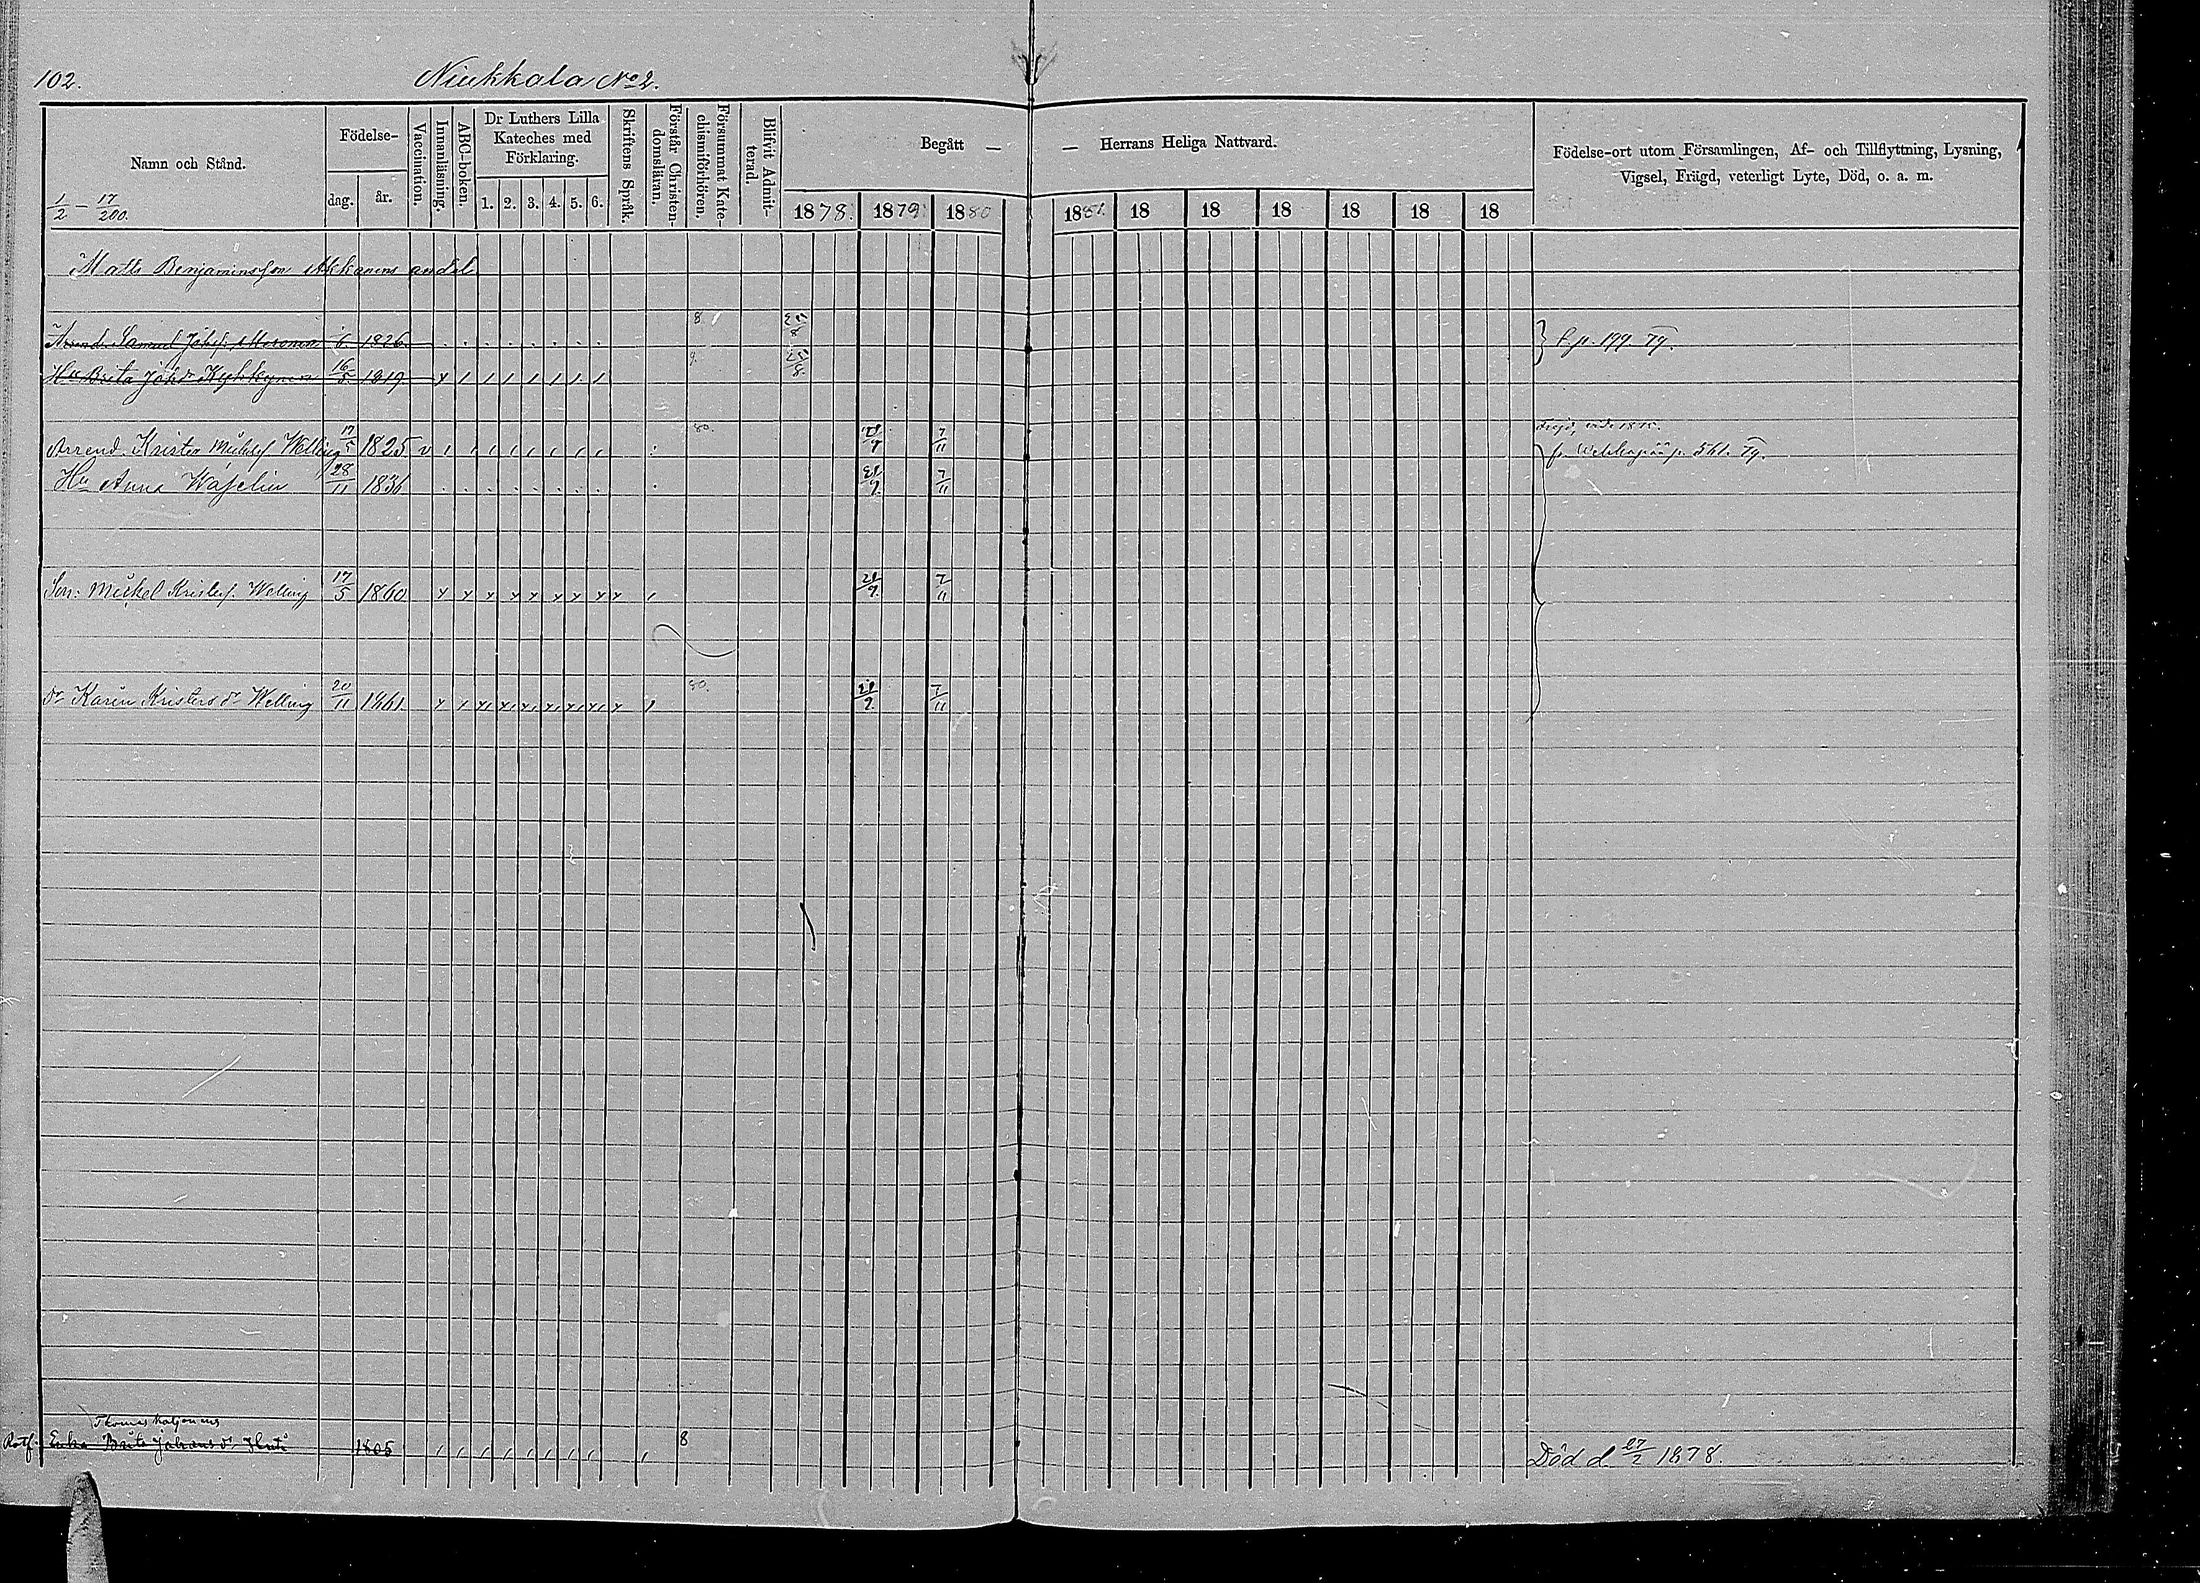 102. Niukkala No 2.
Namn och Stånd.
1/2 – 17/200.
Födelse-
dag. år.
Vaccination.
Innanläsning.
ABC-boken.
Dr Luthers Lilla
Kateches med
Förklaring.
1. 2. 3. 4. 5. 6.
Skriftens Språk.
Förstår Christen-
domsläran.
Försummat Kate-
chismiförhören.
Blifvit Admit-
terad.
Begått — — Herrans Heliga Nattvard.
1878. 1879. 1880 1881. 18 18 18 18 18 18
Födelse-ort utom Församlingen, Af- och Tillflyttning, Lysning,
Vigsel, Frägd, veterligt Lyte, Död, o. a. m.
Matts Benjaminsson Akkanens andel
Arrend. Samuel Johsf. 1826 8 25/8 f. p. 199. Fg.
Hu Brita Johsdr 16/5 1819 9. 25/8.
Arrend. Krister Mickelsf Welling 17/5 1825 v 80. 21/9 7/11
561. Fg.
Hu Anna 28/11 1831 21/9. 7/11
Son: Mickel Kristersf. Welling 17/5 1860 21/9. 7/11
Dr Karin Kristers dr Welling 20/11 1861 80. 21/9. 7/11
Thomas
Rotf. Enka Brita Johans dr 1805 8 Död d. 27/2 1878.